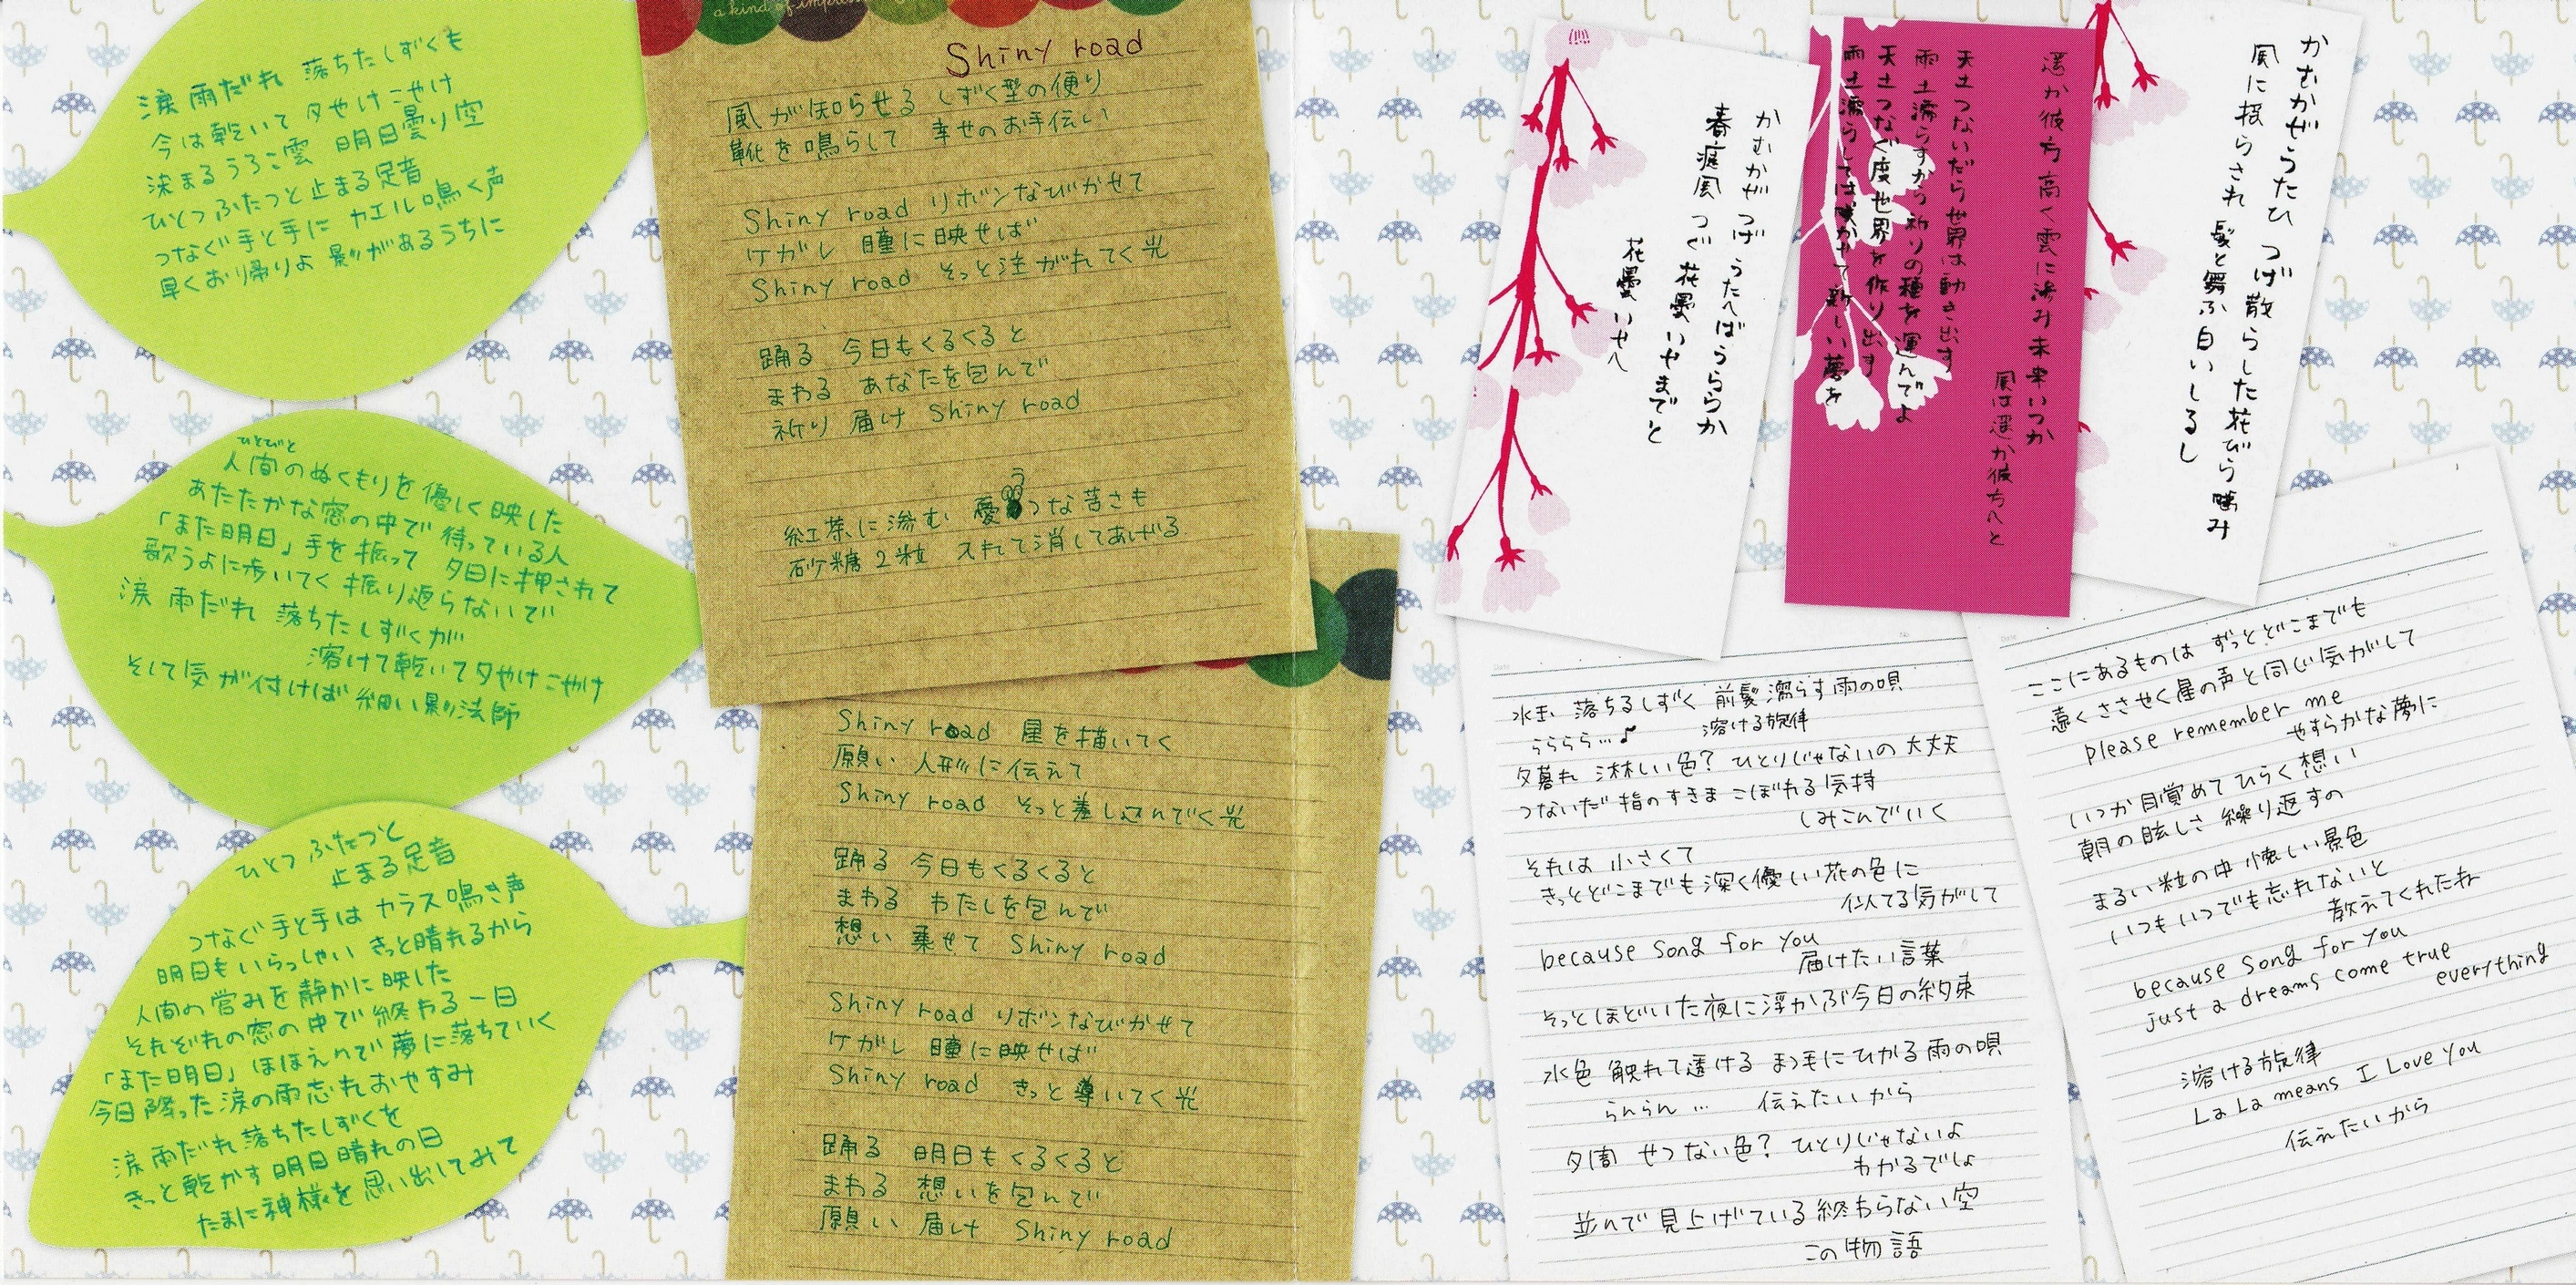 涙 雨だれ 落ちたしずくも
今は乾いて 夕やけこやけ
染まるうろこ雲 明日曇り空
ひとつふたつと止まる足音
つなぐ手と手に カエル鳴く声
早くお帰りよ 影があるうちに
ひとびと
人間のぬくもりを優しく映した
あたたかな窓の中で 待っている人
「また明日」手を振って 夕日に押されて
歌うよに歩いてく 振り返らないで
涙 雨だれ 落ちたしずくが
溶けて乾いて夕やけこやけ
そして気が付けば 細い影法師
ひとつふたつと
止まる足音
つなぐ手と手は カラス鳴き声
明日もいらっしゃい きっと晴れるから
人間の営みを静かに映した
それぞれの窓の中で 終わる一日
「また明日」ほほえんで夢に落ちていく
今日降った涙の雨忘れおやすみ
涙 雨だれ 落ちたしずくを
きっと乾かす明日晴れの日
たまに神様を思い出してみて
a kind of
Shiny road
風が知らせる しずく型の便り
靴を鳴らして 幸せのお手伝い
Shiny road リボンなびかせて
ケガレ 瞳に映せば
Shiny road そっと注がれてく光
踊る 今日もくるくると
まわる あなたを包んで
祈り 届け Shiny road
紅茶に滲む 憂うつな苦さも
砂糖2粒 入れて消してあげる
Shiny road 星を描いてく
願い 人形に伝えて
Shiny road そっと差し込んでく光
踊る 今日もくるくると
まわる わたしを包んで
想い 乗せて Shiny road
Shiny road リボンなびかせて
ケガレ 瞳に映せば
Shiny road きっと導いてく光
踊る 明日もくるくると
まわる 想いを包んで
願い 届け Shiny road
かむかぜうたひ つば散らした花びら噛み
風に揺らされ 髪と舞ふ白いしるし
遥か彼方高く雲に滲み未来いつか
風は遥か彼方へと
天土つないだら世界は動き出す
雨土濡らすから祈りの種を運んでよ
天土つなぐ度世界を作り出す
雨土濡らしては咲かせて新しい夢を
かむかぜ つば うたへばうららか
春疾風 つぐ 花曇いやまでと
花曇いせへ
水玉 落ちるしずく 前髪濡らす雨の唄
うららら…♪ 溶ける旋律
夕暮れ 淋しい色? ひとりじゃないの 大丈夫
つないだ 指のすきま こぼれる気持
しみこんでいく
それは 小さくて
きっとどこまでも深く優しい花の色に
似てる気がして
because song for you
届けたい言葉
そっとほどいた夜に浮かぶ今日の約束
水色 触れて透ける まつ毛にひかる雨の唄
らんらん… 伝えたいから
夕闇 せつない色? ひとりじゃないよ
わかるでしょ
並んで見上げている終わらない空
この物語
ここにあるものは ずっとどこまでも
遠くささやく星の声と同じ気がして
please remember me
やすらかな夢に
いつか目覚めてひらく想い
朝の眩しさ 繰り返すの
まるい粒の中 懐しい景色
いつもいつでも忘れないと
教えてくれたね
because song for you
just a dreams come true
everything
溶ける旋律
La La means I Love you
伝えたいから